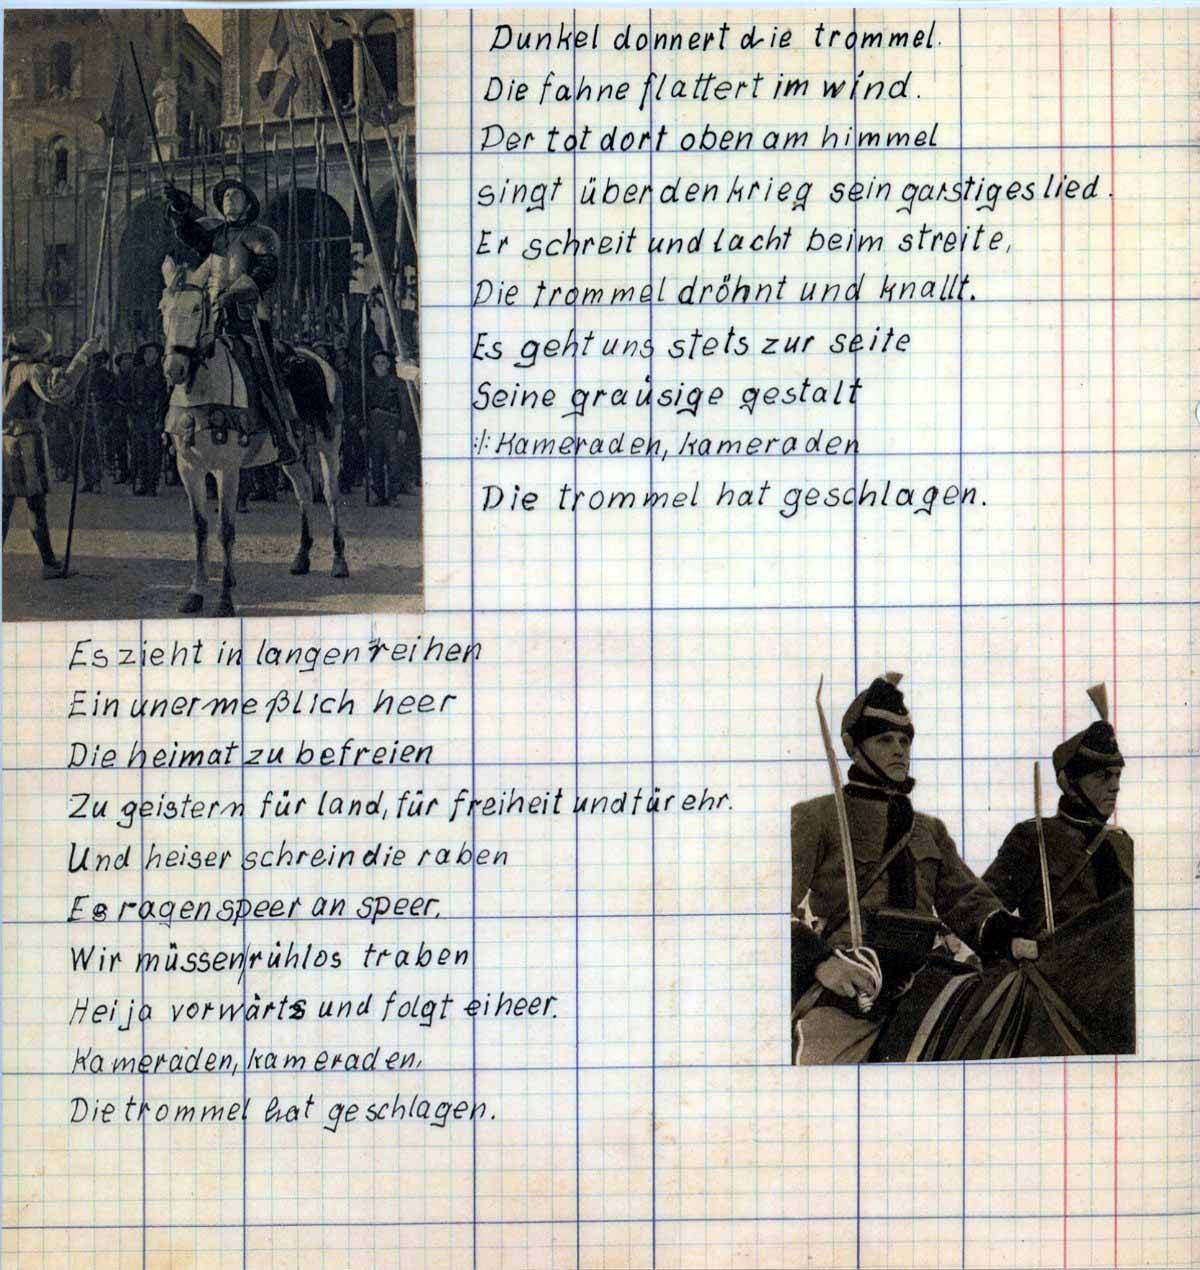 Dunkel donnert die trommel.
Die fahne flattert im wind.
Der tot dort oben am himmel
singt über den krieg sein garstiges lied.
Er schreit und lacht beim streite,
Die trommel dröhnt und knallt.
Es geht uns stets zur seite
Seine grausige gestalt
:/: Kameraden, kameraden
Die trommel hat geschlagen.
Es zieht in langen reihen
Ein unermeßlich heer
Die heimat zu befreien
Zu geistern für land, für freiheit und für ehr.
Und heiser schrein die raben
Es ragen speer an speer.
Wir müssen rühlos traben
Heija vorwärts und folgt eiheer.
Kameraden, kameraden,
Die trommel hat geschlagen.